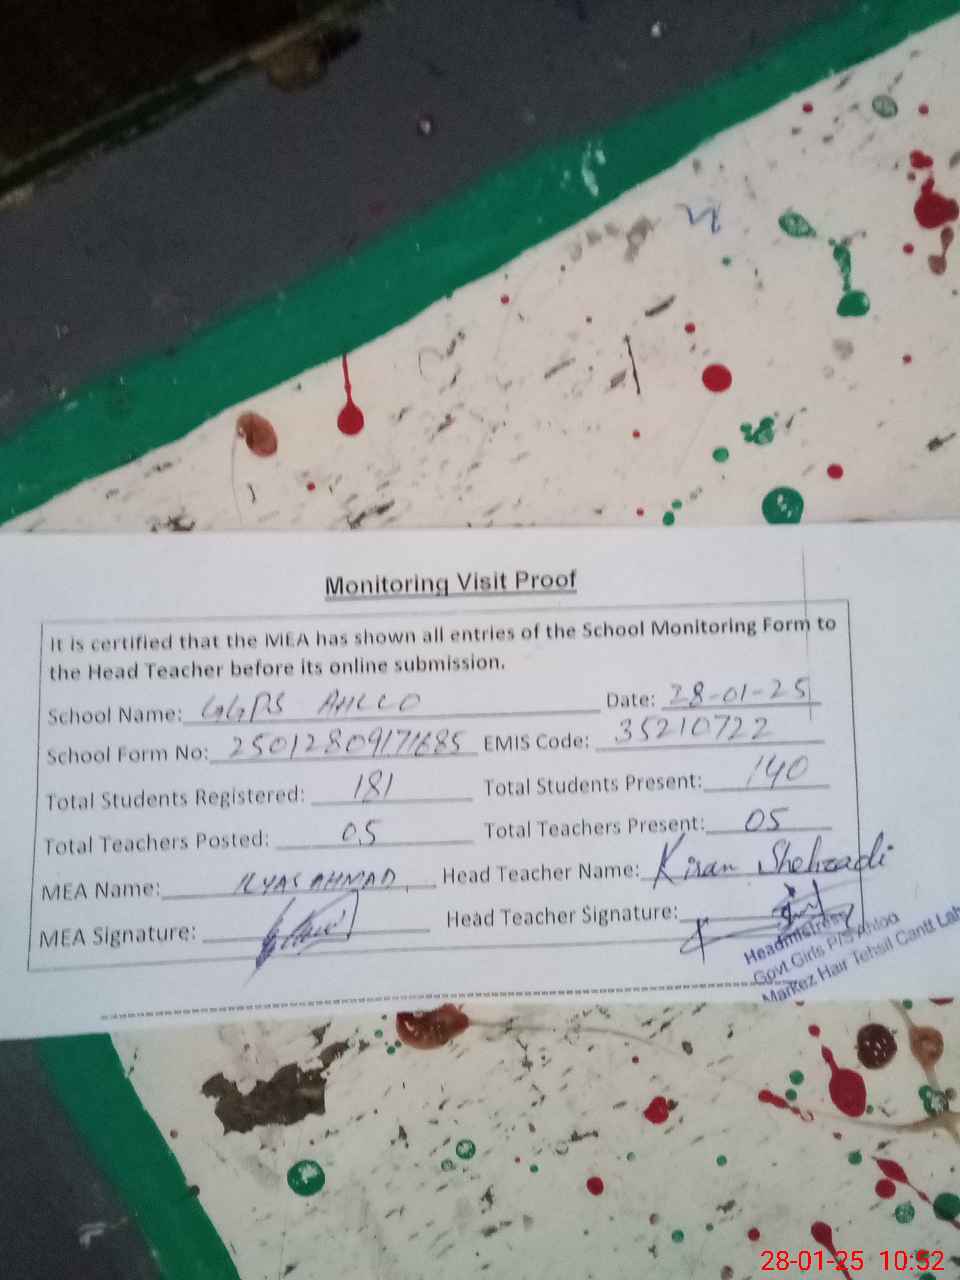 Monitoring Visit Proof
It is certified that the MEA has shown all entries of the School Monitoring Form to
the Head Teacher before its online submission.
School Name: GGPS AHLLO Date: 28-01-25
School Form No: EMIS Code: 35210722
Total Students Registered: 181 Total Students Present: 140
Total Teachers Posted: 05 Total Teachers Present: 05
MEA Name: ILYAS AHMAD Head Teacher Name: Kiran Shehzadi
MEA Signature: Head Teacher Signature:
Headmistress
Govt Girls P/S Ahloo
Markez Hair Tehsil Cantt Lah
28-01-25 10:52